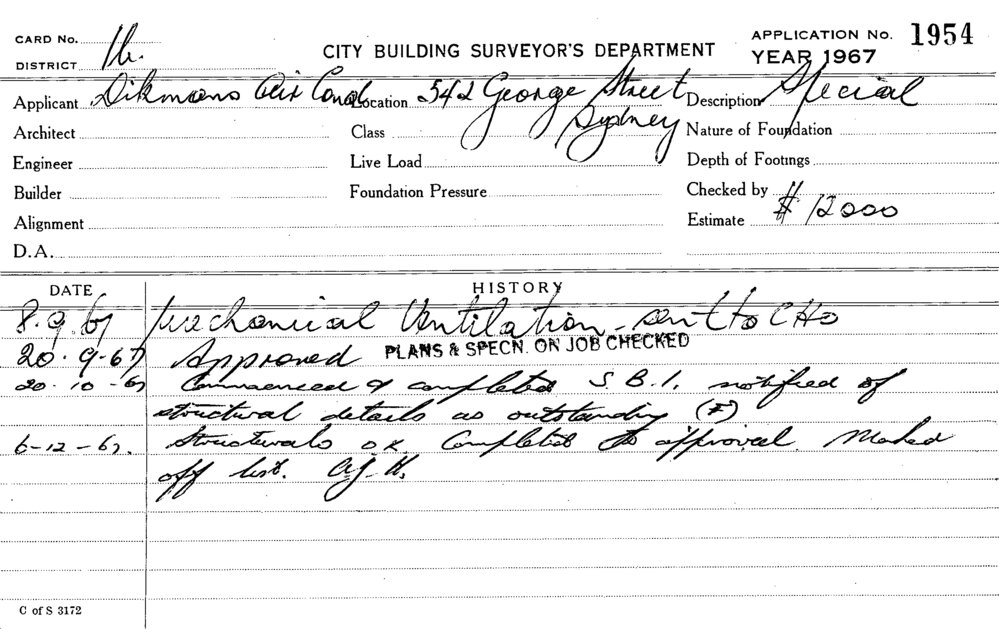 CARD No.
DISTRICT 16.
CITY BUILDING SURVEYOR'S DEPARTMENT
APPLICATION No. 1954
YEAR 1967
Applicant Dikmans Air Cond Location 542 George Street Sydney Description Special
Architect Class Nature of Foundation
Engineer Live Load Depth of Footings
Builder Foundation Pressure Checked by
Alignment Estimate $12000
D.A.
DATE HISTORY
8.9.67 Mechanical Ventilation - sent to CHO
20.9.67 Approved PLANS & SPECN. ON JOB CHECKED
20.10-67 Commenced & completed S.B.I. notified of
structural details as outstanding (F)
6-12-67. Structurals OK Completed to approval. Marked
off list. A.J.H.
C of S 3172